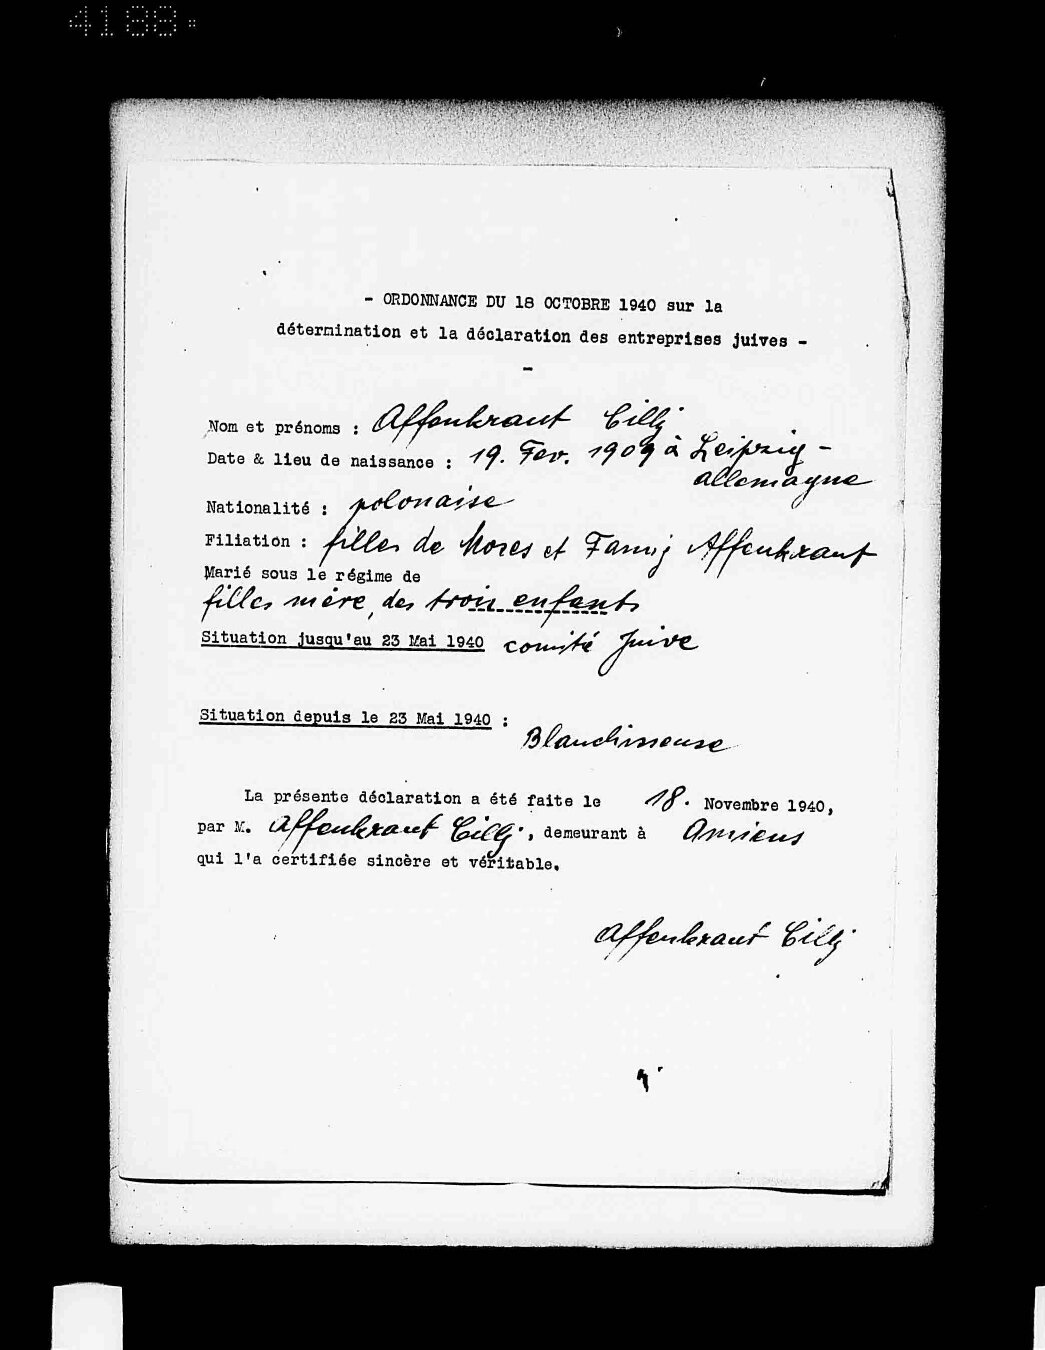 4188
- ORDONNANCE DU 18 OCTOBRE 1940 sur la
détermination et la déclaration des entreprises juives -
-
Nom et prénoms : Affenkraut Cilly
Date & lieu de naissance : 19. Fev. 1909 à Leipzig -
allemagne
Nationalité : polonaise
Filiation : filles de Moses et Fanny Affenkraut
Marié sous le régime de
filles mère, des trois enfants
Situation jusqu'au 23 Mai 1940 comité Juive
Situation depuis le 23 Mai 1940 :
Blanchisseuse
La présente déclaration a été faite le 18. Novembre 1940,
par M. Affenkraut Cilly, demeurant à Amiens
qui l'a certifiée sincère et véritable.
Affenkraut Cilly